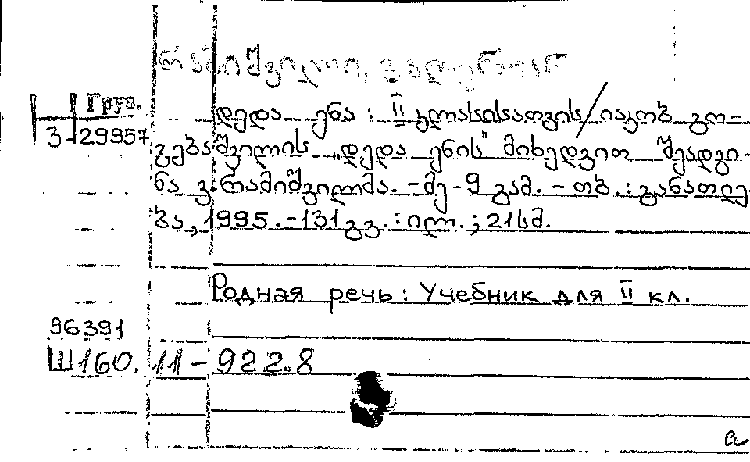 რამიშვილი, ვ
Груз. დედა ენა : II კლასისათვის / იაკობ გო-
3-29957 გებაშვილის „დედა ენის“ მიხედვით შეადგი-
ნა ვ. რამიშვილმა. - მე-9 გამ. - თბ. : განათლე-
ბა, 1995. - 131 გვ. : ილ. ; 21 სმ.
Родная речь : Учебник для II кл.
96391
Ш160. 11 - 922.8